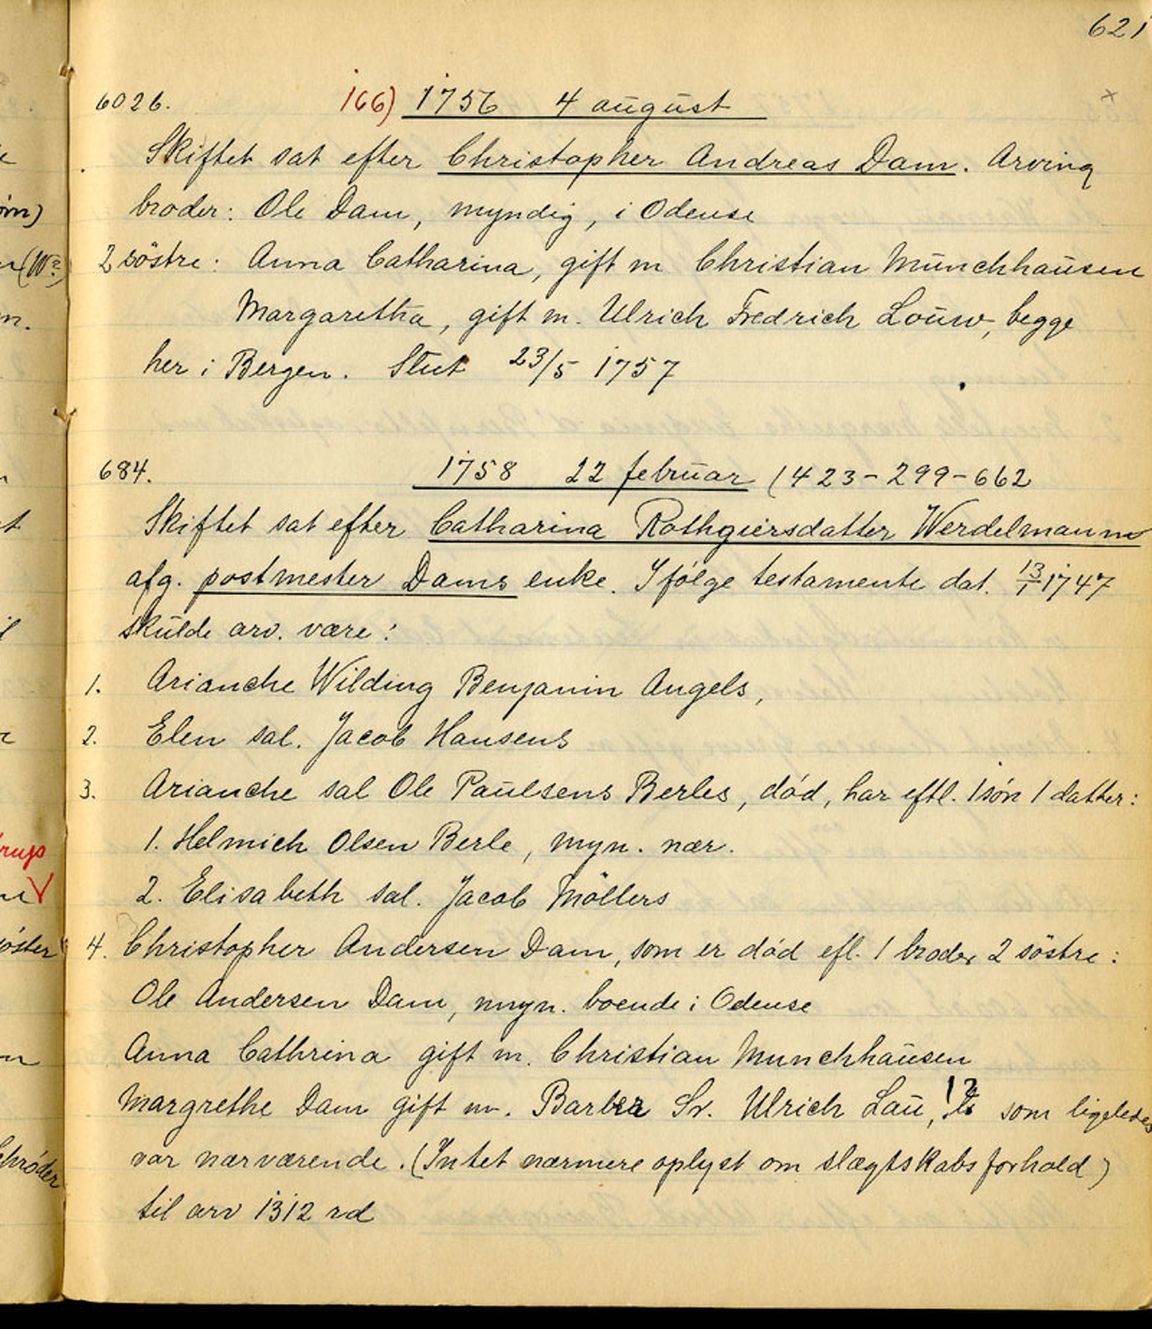 621
6026. 166) 1756 4 august
Skiftet sat efter Christopher Andreas Dam. Arving
broder: Ole Dam, myndig, i Odense
2 söstre: Anna Catharina, gift m Christian Münchhausen
Margaretha, gift m. Ulrich Fredrich Louw, begge
her i Bergen. Slut 23/5 1757
684. 1758 22 februar (423-299-662
Skiftet sat efter Catharina Rothgiersdatter Werdelmann
afg. postmester Dams enke. Ifølge testamente dat. 13/1 1747
skulde arv. være:
1. Arianche Wilding Benjamin Angels,
2. Elen sal. Jacob Hansens
3. Arianche sal Ole Paulsens Berles, død, har eftl. 1 søn 1 datter:
1. Helmich Olsen Berle, myn. nær.
2. Elisabeth sal. Jacob Möllers
4. Christopher Andersen Dam, som er død efl. 1 broder 2 söstre:
Ole Andersen Dam, myn. boende i Odense
Anna Cathrina gift m. Christian Munchhausen
Margrethe Dam gift m. Barber Sr. Ulrich Lau, som ligeledes
var nærværende. (Intet nærmere oplyst om slægtskabsforhold)
til arv 1312 rd